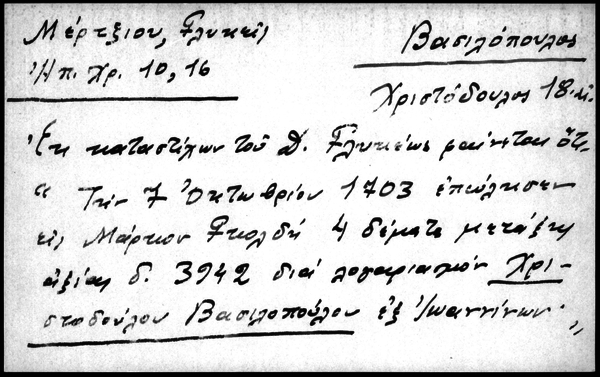 Μέρτζιου, Γλυκεῖς
Ἠπ. Χρ. 10, 16
Βασιλόπουλος
Χριστόδουλος 18. αἰ.
Ἐκ καταστίχων τοῦ Δ. Γλυκέως φαίνεται ὅτι
" Τὴν 7 Ὀκτωβρίου 1703 ἐπώλησεν
εἰς Μάρκον Γκολδῆ 4 δέματα μετάξης
ἀξίας δ. 3942 διά λογαριασμόν Χρι-
στοδούλου Βασιλοπούλου ἐξ Ἰωαννίνων. "